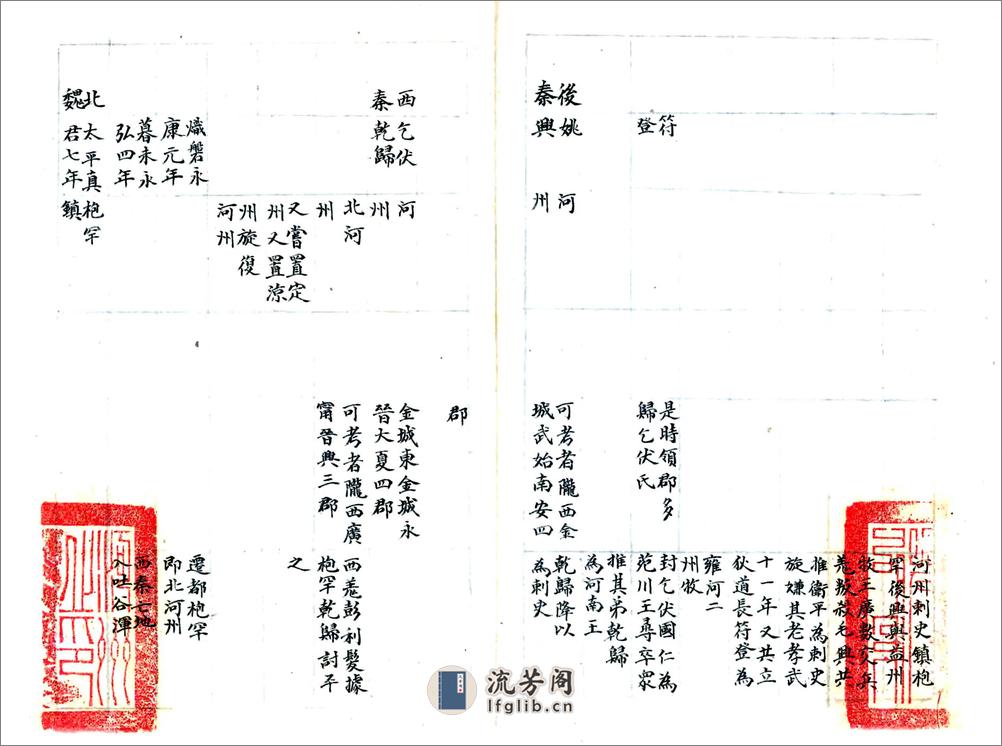 符
登
後姚
秦興
河
州
是時領郡多
歸乞伏氏
可考者隴西金
城武始南安四
河州刺史鎮枹
罕後興與益州
牧王廣數交兵
羌叛殺毛興共
推衞平為刺史
旋嫌其老孝武
十一年又共立
狄道長符登為
雍河二
州牧
封乞伏國仁為
苑川王尋卒眾
推其弟乾歸
為河南王
乾歸降以
為刺史
西乞伏
秦乾歸
熾磐永
康元年
暮末永
弘四年
北太平真
魏君七年
河
州
北河
州
又嘗置定
州又置涼
州旋復
河州
枹罕
鎮
郡
金城東金城永
晉大夏四郡
可考者隴西廣
甯晉興三郡
西羌彭利髮據
枹罕乾歸討平
之
遷都枹罕
即北河州
西秦亡地
入吐谷渾
流芳阁
lfglib.cn